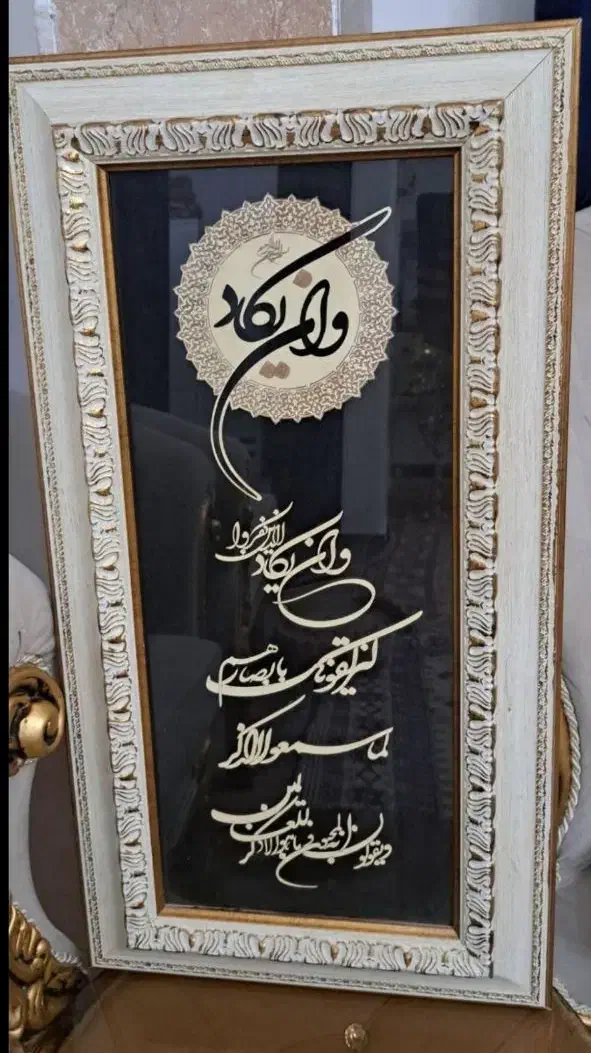 بسم الله الرحمن الرحیم
وان یکاد
وان یکاد الذین کفروا
لیزلقونک بابصارهم
لما سمعوا الذکر
ویقولون انه لمجنون وما هو الا ذکر
للعالمین